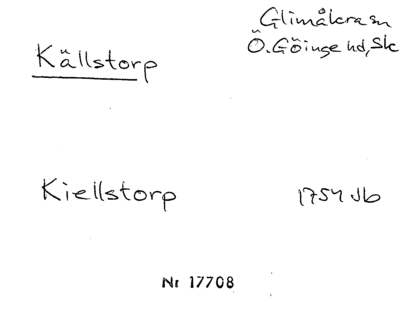 Källstorp
Glimåkra sn
Ö. Göinge hd, Sk
Kiellstorp
1754 Jb
Nr 17708